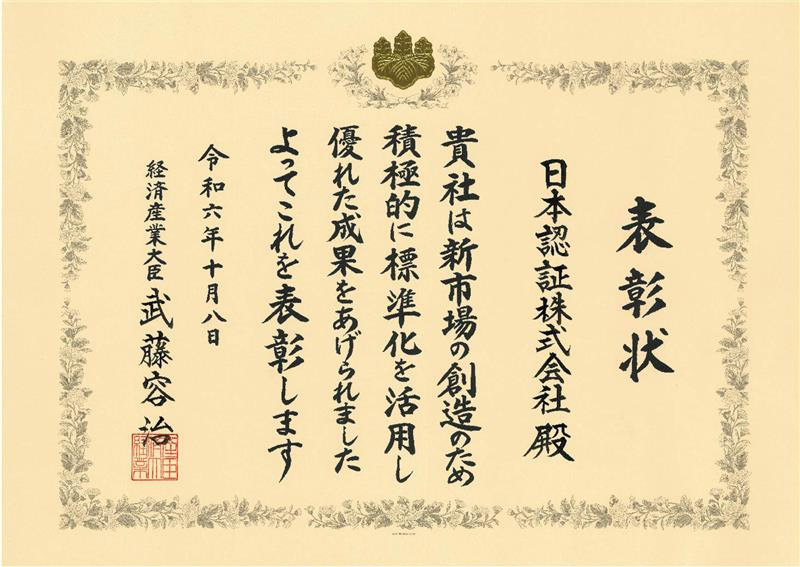 表彰状
日本認証株式会社 殿
貴社は新市場の創造のため
積極的に標準化を活用し
優れた成果をあげられました
よってこれを表彰します
令和六年十月八日
経済産業大臣 武藤容治